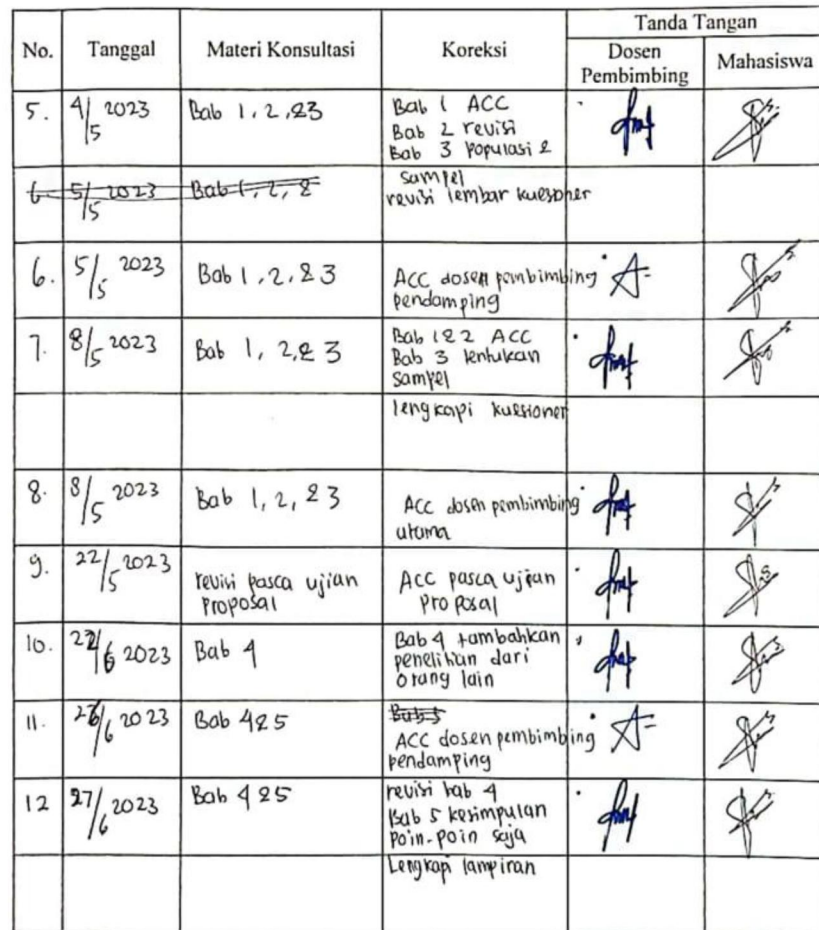 Tanda Tangan
No. Tanggal Materi Konsultasi Koreksi Dosen Pembimbing Mahasiswa
5. 4/5 2023 Bab 1, 2, & 3 Bab 1 ACC
Bab 2 revisi
Bab 3 populasi &
sampel
6. 5/5 2023 Bab 1, 2, & revisi lembar kuesioner
6. 5/5 2023 Bab 1, 2, & 3 ACC dosen pembimbing
pendamping
7. 8/5 2023 Bab 1, 2, & 3 Bab 1&2 ACC
Bab 3 tentukan
sampel
lengkapi kuesioner
8. 8/5 2023 Bab 1, 2, & 3 ACC dosen pembimbing
utama
9. 22/5 2023 revisi pasca ujian ACC pasca ujian
proposal proposal
10. 22/6 2023 Bab 4 Bab 4 tambahkan
penelitian dari
orang lain
11. /6 2023 Bab 4&5
ACC dosen pembimbing
pendamping
12 27/6 2023 Bab 4&5 revisi bab 4
Bab 5 kesimpulan
poin-poin saja
Lengkapi lampiran